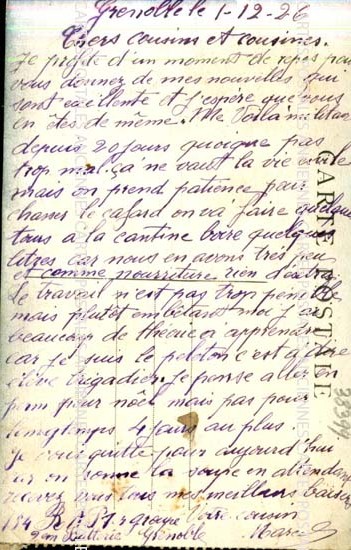 Grenoble le 1-12-26
Chers cousins et cousines.
Je profite d'un moment de repos pour
vous donner de mes nouvelles qui
sont excellente et j'espère que vous
en êtes de même. Me voila militaire
depuis 20 jours quoique pas
trop mal ça ne vaut la vie civile
mais on prend patience pour
chasser le cafard on va faire quelque
tous a la cantine boire quelques
litres car nous en avons très peu
et comme nourriture rien d'extra.
Le travail n'est pas trop penible
mais plutôt embêtant moi j'ai
beaucoup de théorie a apprendre
car je suis le peloton c'est à dire
élève brigadier. Je pense aller en
perm pour noël mais pas pour
longtemps 4 jours au plus.
Je vous quitte pour aujourd'hui
car on sonne la soupe en attendant
recevez vous tous mes meillurs baisers
154 R. A. P. groupe Votre cousin
2em Batterie Grenoble Marcel
CARTE POSTALE